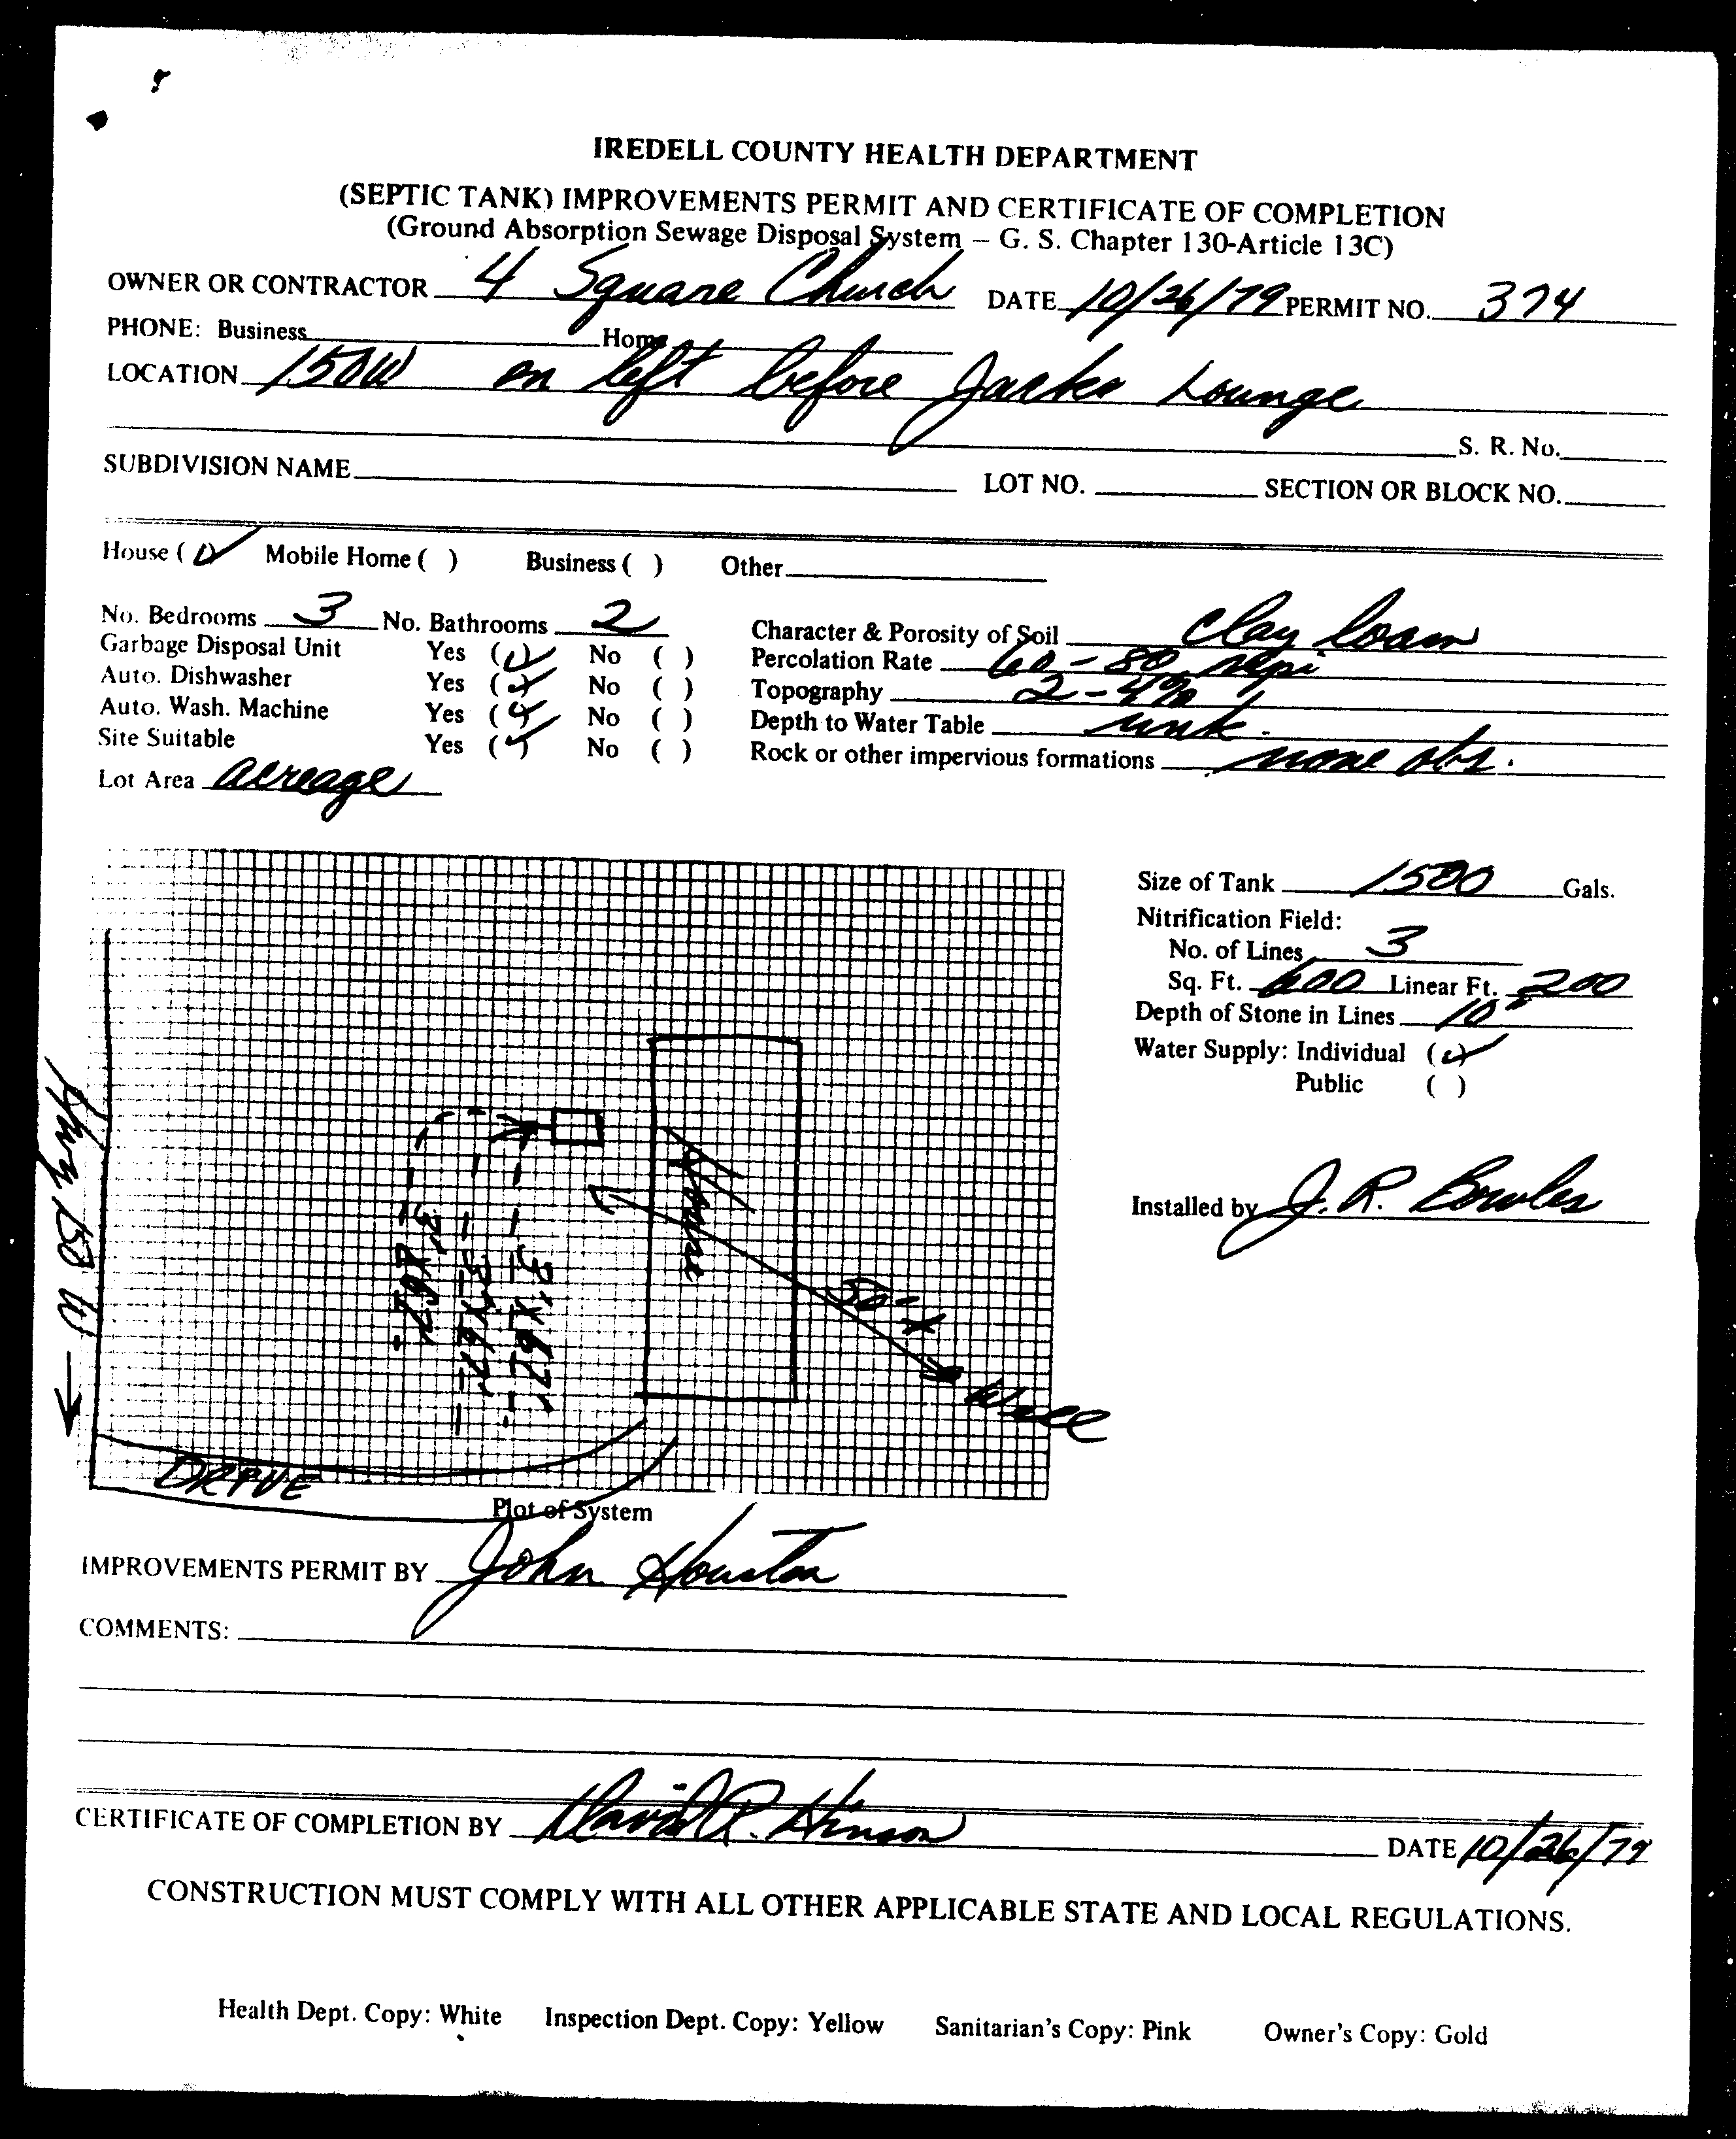 IREDELL COUNTY HEALTH DEPARTMENT
(SEPTIC TANK) IMPROVEMENTS PERMIT AND CERTIFICATE OF COMPLETION
(Ground Absorption Sewage Disposal System – G. S. Chapter 130-Article 13C)
OWNER OR CONTRACTOR 4 Square Church DATE 10/26/79 PERMIT NO. 374
PHONE: Business Home
LOCATION 150W on left before Jacks Lounge
S. R. No.
SUBDIVISION NAME LOT NO. SECTION OR BLOCK NO.
House (✓) Mobile Home ( ) Business ( ) Other
No. Bedrooms 3 No. Bathrooms 2 Character & Porosity of Soil clay loam
Garbage Disposal Unit Yes (✓) No ( ) Percolation Rate 60-80 mpi
Auto. Dishwasher Yes (✓) No ( ) Topography 2-4%
Auto. Wash. Machine Yes (✓) No ( ) Depth to Water Table unk.
Site Suitable Yes (✓) No ( ) Rock or other impervious formations none obs.
Lot Area acreage
Size of Tank 1500 Gals.
Nitrification Field:
No. of Lines 3
Sq. Ft. 600 Linear Ft. 200
Depth of Stone in Lines 10"
Water Supply: Individual (✓)
Public ( )
Installed by J. R. Bowles
Hwy 150 W
3' X 67'
3' X 67'
3' X 67'
House
50-X
Well
DRIVE
Plot of System
IMPROVEMENTS PERMIT BY John Houston
COMMENTS:
CERTIFICATE OF COMPLETION BY David R. Hinson DATE 10/26/79
CONSTRUCTION MUST COMPLY WITH ALL OTHER APPLICABLE STATE AND LOCAL REGULATIONS.
Health Dept. Copy: White Inspection Dept. Copy: Yellow Sanitarian's Copy: Pink Owner's Copy: Gold